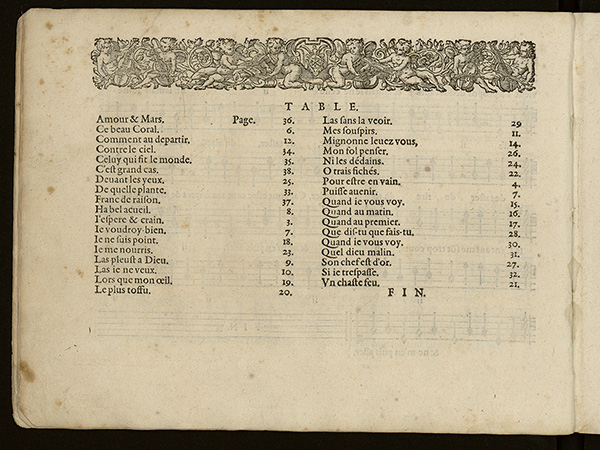 TABLE.
Amour & Mars. Page. 36.
Ce beau Coral. 6.
Comment au departir. 12.
Contre le ciel. 34.
Celuy qui fit le monde. 35.
C'est grand cas. 38.
Deuant les yeux. 25.
De quelle plante. 33.
Franc de raison. 37.
Ha bel acueil. 8.
I'espere & crain. 3.
Ie voudroy bien. 7.
Ie ne suis point. 18.
Ie me nourris. 23.
Las pleust a Dieu. 9.
Las ie ne veux. 10.
Lors que mon œil. 19.
Le plus toffu. 20.
Las sans la veoir. 29
Mes souspirs. 11.
Mignonne leuez vous, 14.
Mon fol penser. 26.
Ni les dédains. 24.
O trais fichés. 22.
Pour estre en vain. 4.
Puisse auenir. 7.
Quand ie vous voy. 15.
Quand au matin. 16.
Quand au premier. 17.
Que dis-tu que fais-tu. 28.
Quand ie vous voy. 30.
Quel dieu malin. 31.
Son chef est d'or. 27.
Si ie trespasse. 32.
Vn chaste feu. 21.
FIN.